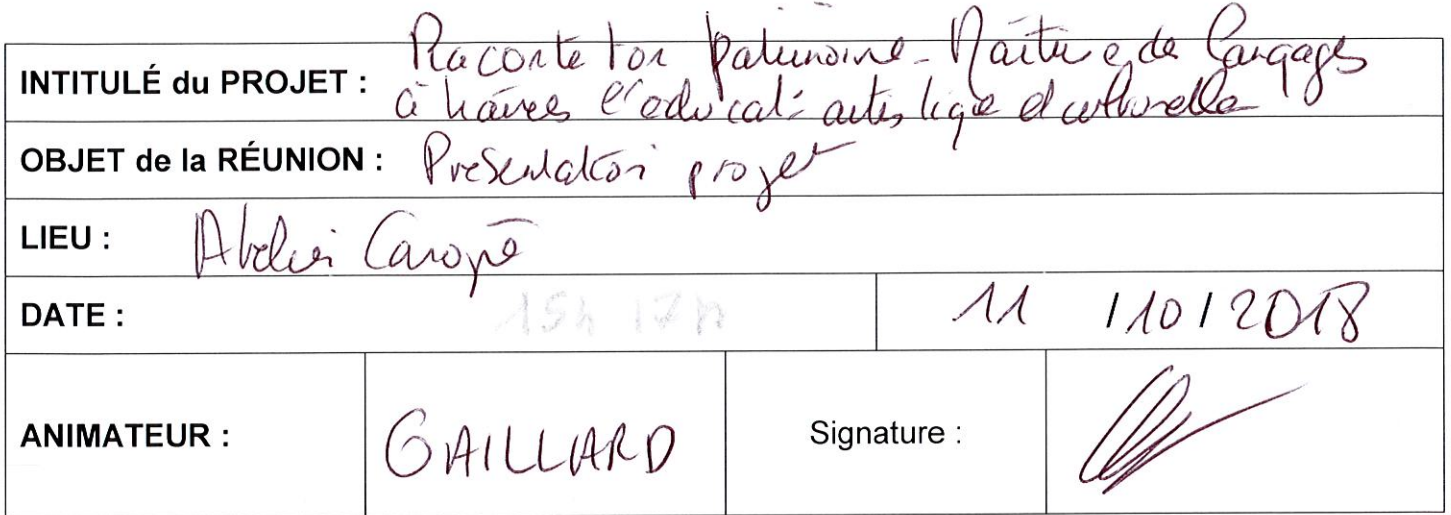 Raconte ton patrimoine - Maîtrise de langages
INTITULÉ du PROJET :
à travers l'éducat° artistique et culturelle
OBJET de la RÉUNION : Présentation projet
LIEU : Atelier Canopé
DATE : 15h 17h 11 / 10 / 2018
ANIMATEUR : GAILLARD Signature :